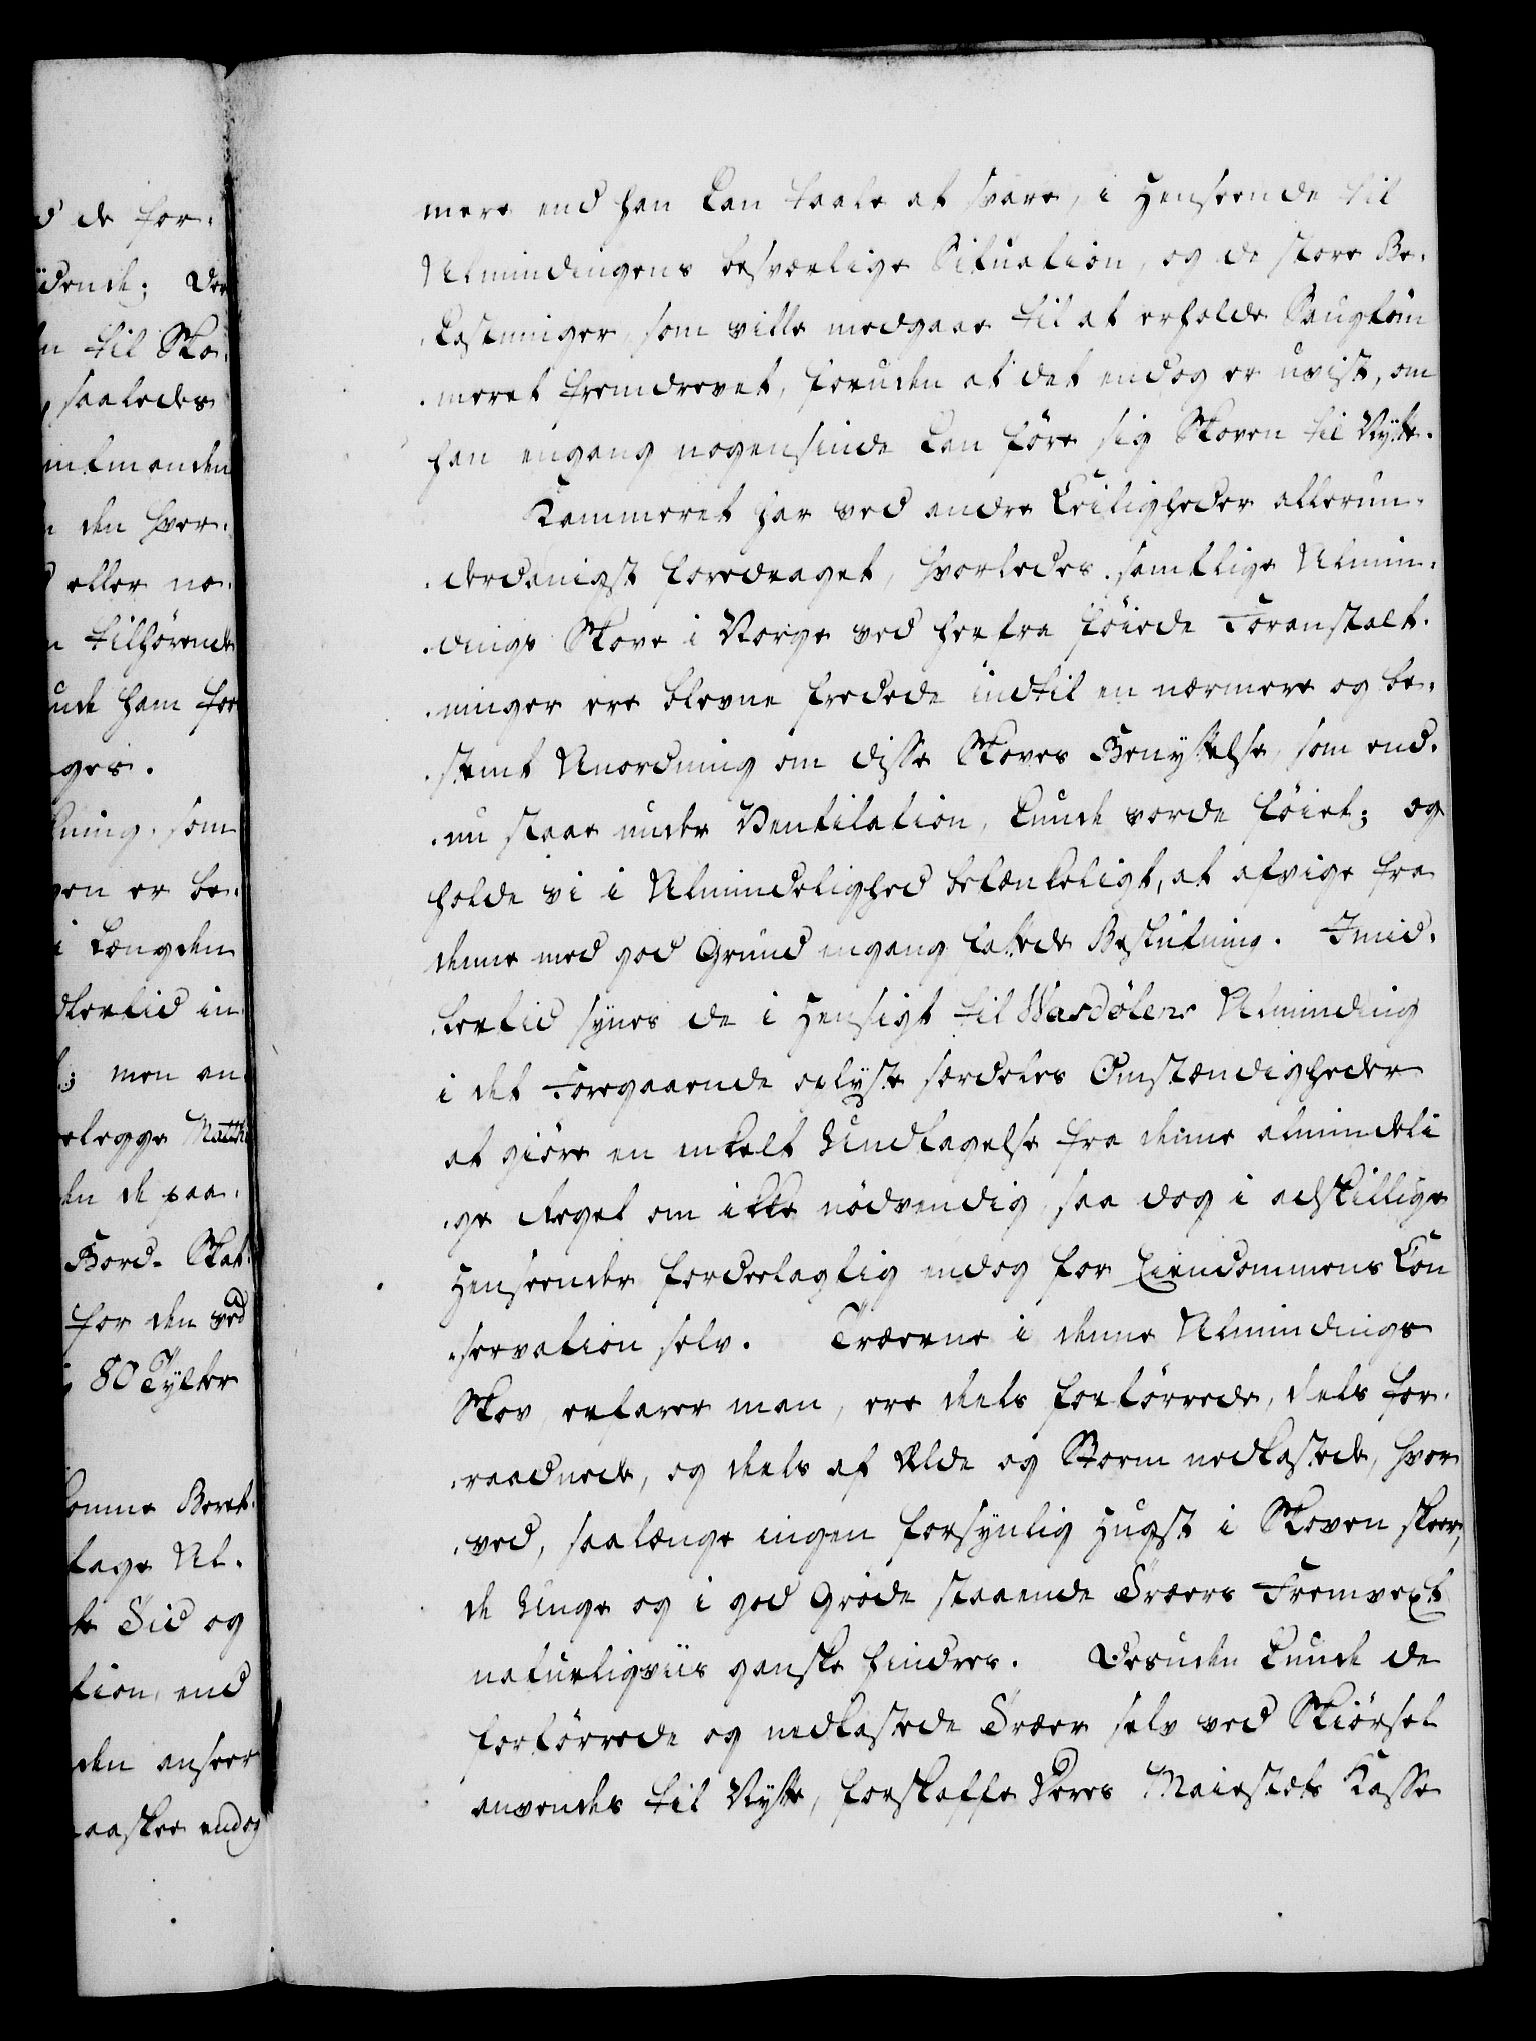 d de for-
ÿdende; Der
n til Sko-
saaledes
mtmanden
den hver-
eller no-
n tilhørende
unde ham for
ges.
ning, som
ven er be-
i Længden
dlertid in
; men an-
elegge Matth
den de paa-
Bord. Skat-
for den ved
80 Tylter
komne Beret-
tage Al-
te Tid og
tion, end
den anseer
aaskee endog
mere end han kan taale at svare, i Henseende til
Almindingens besværlige Situation, og de store Be-
kostninger, som ville medgaae til at erholde Saugtøm
meret fremdrevet, foruden at det endog er uvist, om
han engang nogensinde kan føre sig Skoven til Nytte.
Kammeret har ved andre Leiligheder allerun-
derdanigst foredraget, hvorledes samtlige Almin-
dings Skove i Norge ved herfra føiede Foranstalt-
ninger ere blevne fredede indtil en nærmere og be-
stemt Anordning om disse Skoves Benyttelse, som end-
nu staae under Ventilation, kunde vorde føiet; og
holde vi i Almindelighed betænkeligt, at afvige fra
denne med god Grund engang fattede Beslutning. Imid-
lertid synes de i Hensigt til Wasdølens Alminding
i det Foregaaende oplyste særdeles Omstændigheder
at giøre en enkelt Undtagelse fra denne almindeli
ge Regel om ikke nødvendig, saa dog i adskillige
Henseender fordeelagtig endog for Eiendommens Con
servation selv. Træerne i denne Almindings
Skov, erfarer man, ere deels fortørrede, deels for-
raadnede, og deels af Ælde og Storm nedkastede, hvor
ved, saalænge ingen forsynlig Hugst i Skoven skeer,
de Unge og i god Grøde staaende Træers Fremvext
naturligviis ganske hindres. Desuden kunde de
fortørrede og nedkastede Træer selv ved Skiørsel
anvendes til Nytte, forskaffe Deres Maiestæts Kasse